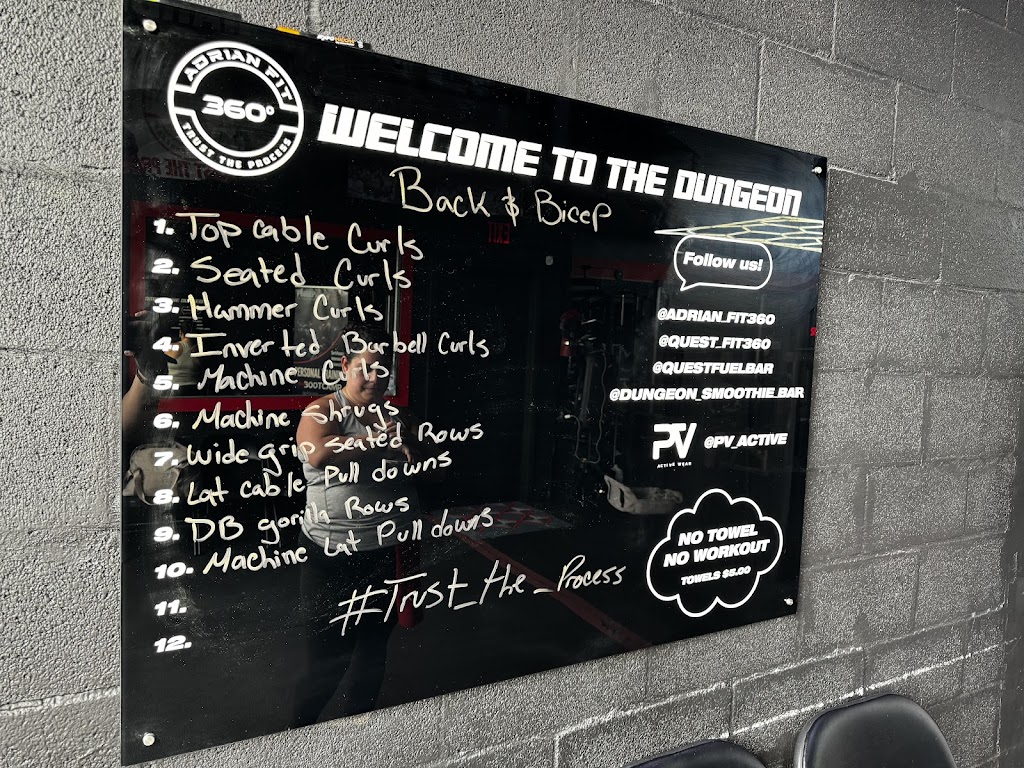 ADRIAN FIT
360°
TRUST THE PROCESS
WELCOME TO THE DUNGEON
Back & Bicep
1. Top cable Curls
2. Seated Curls
3. Hammer Curls
4. Inverted Barbell Curls
5. Machine Curls
6. Machine Shrugs
7. Wide grip seated Rows
8. Lat cable Pull downs
9. DB gorilla Rows
10. Machine Lat Pull downs
11.
12.
#Trust_the_Process
Follow us!
@ADRIAN_FIT360
@QUEST_FIT360
@QUESTFUELBAR
@DUNGEON_SMOOTHIE_BAR
PV
ACTIVE WEAR
@PV_ACTIVE
NO TOWEL
NO WORKOUT
TOWELS $5.00
EXIT
PERSONAL
BOOTCAMP